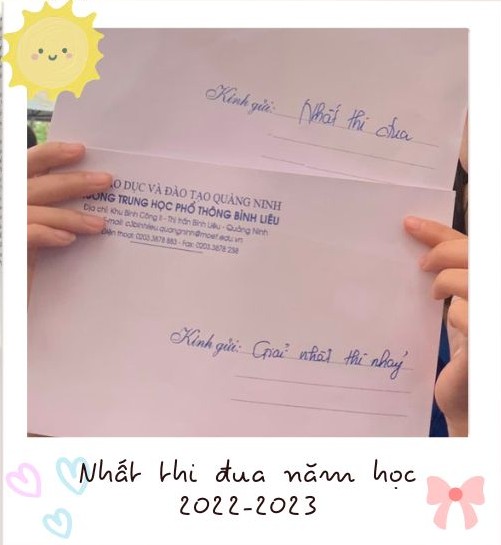 Kính gửi: Nhất thi đua
O DỤC VÀ ĐÀO TẠO QUẢNG NINH
ỜNG TRUNG HỌC PHỔ THÔNG BÌNH LIÊU
Địa chỉ: Khu Bình Công II - Thị trấn Bình Liêu - Quảng Ninh
mail: c3binhlieu.quangninh@moet.edu.vn
Điện thoại: 0203.3878 883 - Fax: 0203.3878 238
Kính gửi: Giải nhất thi nhảy
Nhất thi đua năm học
2022-2023